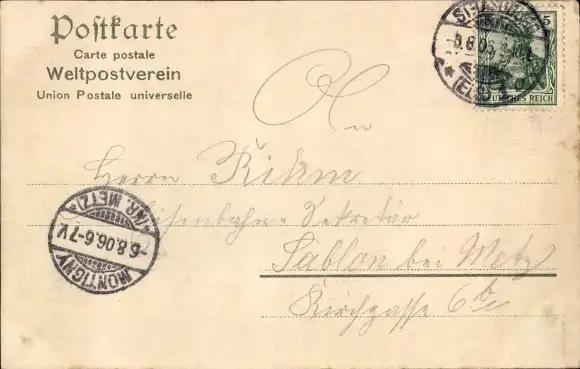 Postkarte
Carte postale
Weltpostverein
Union Postale universelle
5
DEUTSCHES REICH
An
Herrn Rikm
Eisenbahn-Sekretär
Sablon bei Metz
Kirchgasse 6b
MONTIGNY
-6.8.06.6-7V.
*(KR. METZ)*